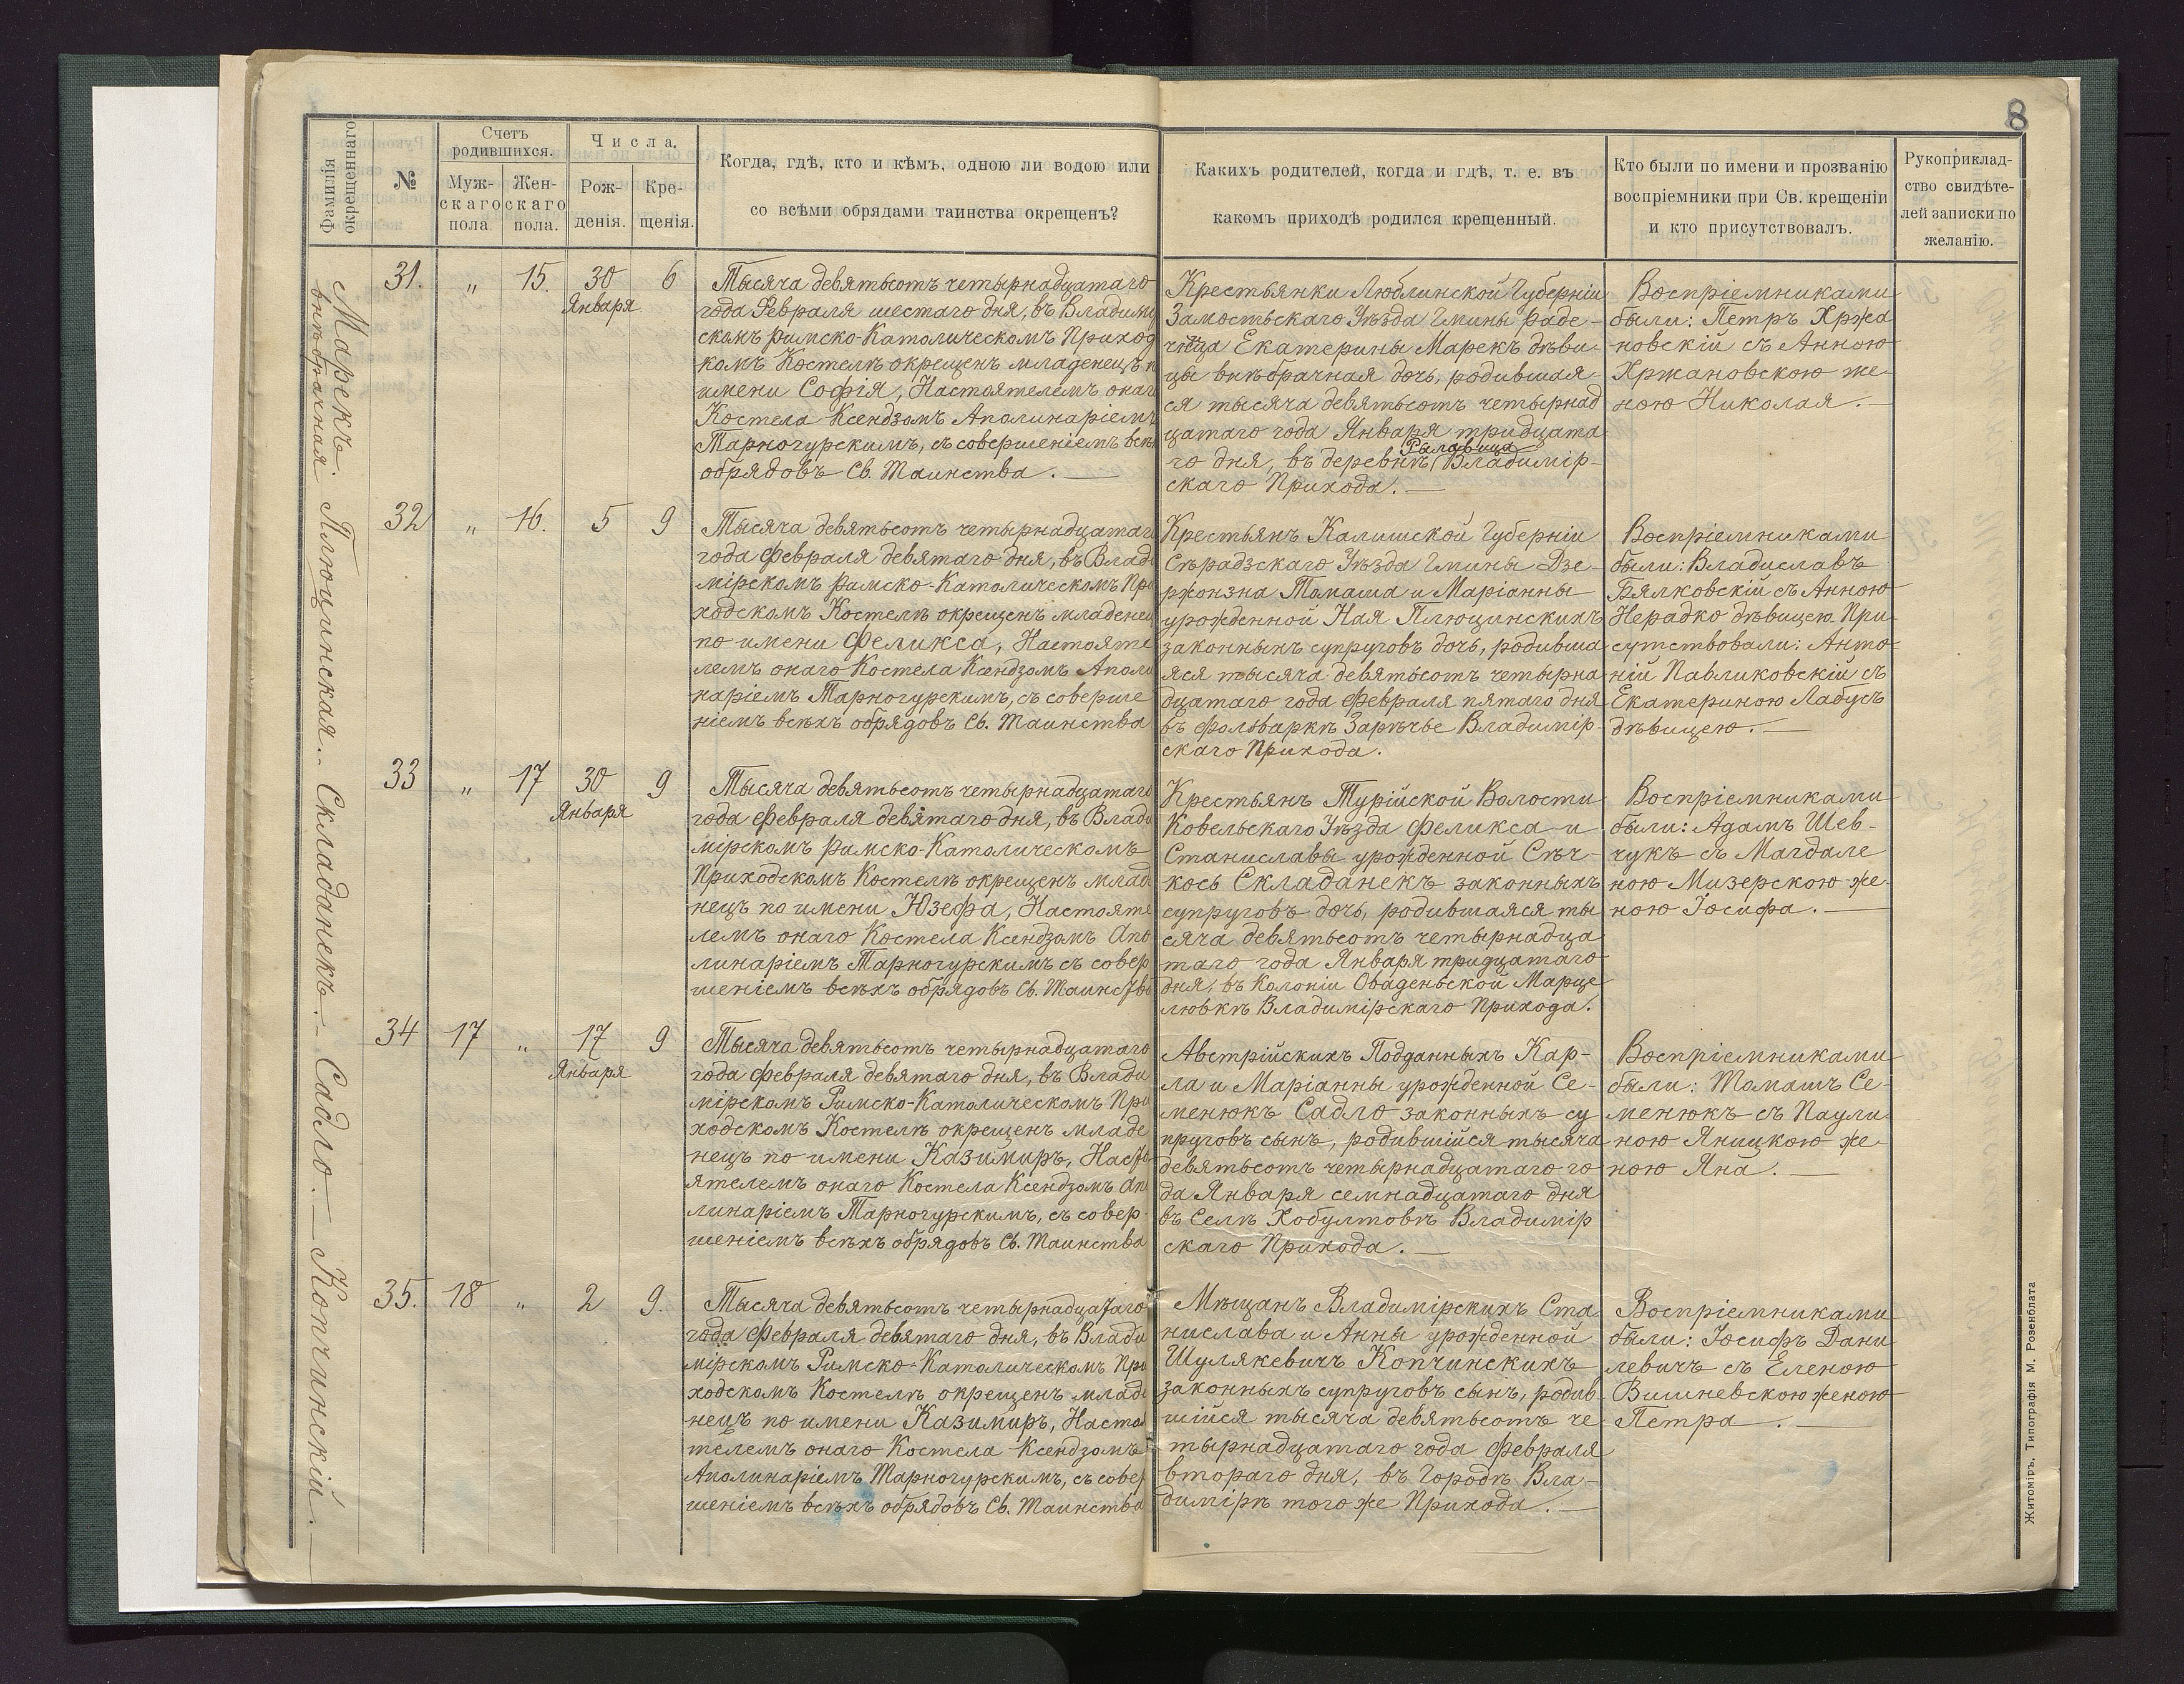 8
Фамилія окрещеннаго
№
Счетъ родившихся.
Муж-скаго пола
Жен-скаго пола.
Числа.
Рож-денія.
Кре-щенія.
Когда, гдѣ, кто и кѣмъ, одною ли водою или
со всѣми обрядами таинства окрещенъ?
Какихъ родителей, когда и гдѣ, т. е. въ
какомъ приходѣ родился крещенный.
Кто были по имени и прозванію
воспріемники при Св. крещеніи
и кто присутствовалъ.
Рукоприклад-
ство свидѣте-
лей записки по
желанію.
Марекъ.
внѣбрачная
31. „ 15. 30 6
Января
Тысяча девятьсотъ четырнадцатаго
года Февраля шестаго дня, въ Владимі
скомъ Римско-Католическомъ Приход
комъ Костелѣ окрещенъ младенецъ п
имени Софія, Настоятелемъ онаг
Костела Ксендзомъ Аполинаріемъ
Тарногурскимъ, съ совершеніемъ всѣ
обрядовъ Св. Таинства.
Крестьянки Люблинской Губерніи
Замостьскаго Уѣзда Гмины Раде-
чница Екатерины Марекъ дѣви-
цы внѣбрачная дочь, родившая-
ся тысяча девятьсотъ четырнад
цатаго года Января тридцата
го дня, въ деревнѣ Владимір-
скаго Прихода.
Воспріемниками
были: Петръ Хржа
новскій съ Анною
Хржановскою же-
ною Николая.
Плюцинская.
32 „ 16. 5 9
Тысяча девятьсотъ четырнадцатаг
года Февраля девятаго дня, въ Влади
мірскомъ Римско-Католическомъ При
ходскомъ Костелѣ окрещенъ младенец
по имени Феликса, Настояте
лемъ онаго Костела Ксендзомъ Аполи
наріемъ Тарногурскимъ, съ соверше
ніемъ всѣхъ обрядовъ Св. Таинства
Крестьянъ Калишской Губерніи
Сѣрадзскаго Уѣзда Гмины Дзе-
ржонзна Томаша и Маріанны
урожденной Ная Плюцинскихъ
законныхъ супруговъ дочь, родивша
яся тысяча девятьсотъ четырна
дцатаго года Февраля пятаго дня
въ фольваркѣ Зарѣчье Владимір-
скаго Прихода.
Воспріемниками
были: Владиславъ
Бялковскій съ Анною
Нерадко дѣвицею. При
сутствовали: Анто-
ній Павликовскій съ
Екатериною Лабусь
дѣвицею.
Складанекъ.
33 „ 17 30 9
Января
Тысяча девятьсотъ четырнадцатаго
года Февраля девятаго дня, въ Влади
мірскомъ Римско-Католическомъ
Приходскомъ Костелѣ окрещенъ млад
нецъ по имени Юзефа, Настояте
лемъ онаго Костела Ксендзомъ Апо
линаріемъ Тарногурскимъ съ совер
шеніемъ всѣхъ обрядовъ Св. Таинства
Крестьянъ Турійской Волости
Ковельскаго Уѣзда Феликса и
Станиславы урожденной Сѣч-
кось Складанекъ законныхъ
супруговъ дочь, родившаяся ты
сяча девятьсотъ четырнадца
таго года Января тридцатаго
дня, въ Колоніи Оваденьской Марце
любкѣ Владимірскаго Прихода.
Воспріемниками
были: Адамъ Шев-
чукъ съ Магдале
ною Мизерскою же-
ною Іосифа.
Садло.
34 17 „ 17 9
Января
Тысяча девятьсотъ четырнадцатаго
года Февраля девятаго дня, въ Влади
мірскомъ Римско-Католическомъ При
ходскомъ Костелѣ окрещенъ младе
нецъ по имени Казимиръ, Насто
ятелемъ онаго Костела Ксендзомъ Апо
линаріемъ Тарногурскимъ, съ совер-
шеніемъ всѣхъ обрядовъ Св. Таинства
Австрійскихъ Подданныхъ Кар-
ла и Маріанны урожденной Се-
менюкъ Садло законныхъ су
пруговъ сынъ, родившійся тысяча
девятьсотъ четырнадцатаго го
да Января семнадцатаго дня
въ Селѣ Хобултовѣ Владимір
скаго Прихода.
Воспріемниками
были: Томашъ Се-
менюкъ съ Паули
ною Яницкою же-
ною Яна.
Копчинскій.
35. 18 „ 2 9.
Тысяча девятьсотъ четырнадцатаго
года Февраля девятаго дня, въ Влади
мірскомъ Римско-Католическомъ При
ходскомъ Костелѣ, окрещенъ млад
нецъ по имени Казимиръ, Настоя
телемъ онаго Костела Ксендзомъ
Аполинаріемъ Тарногурскимъ, съ совер
шеніемъ всѣхъ обрядовъ Св. Таинства
Мѣщанъ Владимірскихъ Ста
нислава и Анны урожденной
Шулякевичъ Копчинскихъ
законныхъ супруговъ сынъ, родив-
шійся тысяча девятьсотъ че
тырнадцатаго года Февраля
втораго дня, въ Городѣ Вла-
димірѣ того же Прихода.
Воспріемниками
были: Іосифъ Дани
левичъ съ Еленою
Вишневскою женою
Петра.
Житоміръ, Типографія М. Розенблата